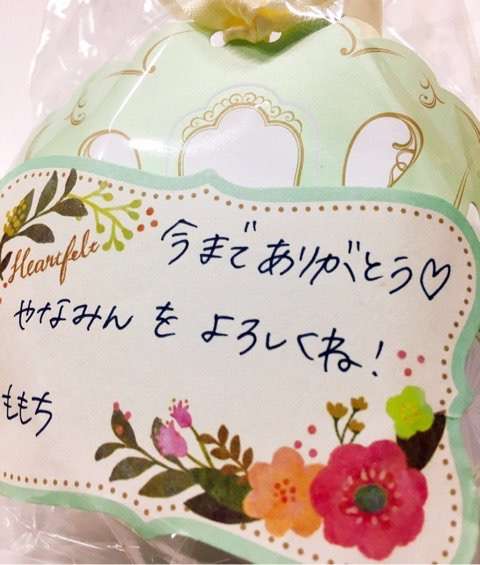 Heartfelt
今までありがとう♡
やなみんをよろしくね！
ももち